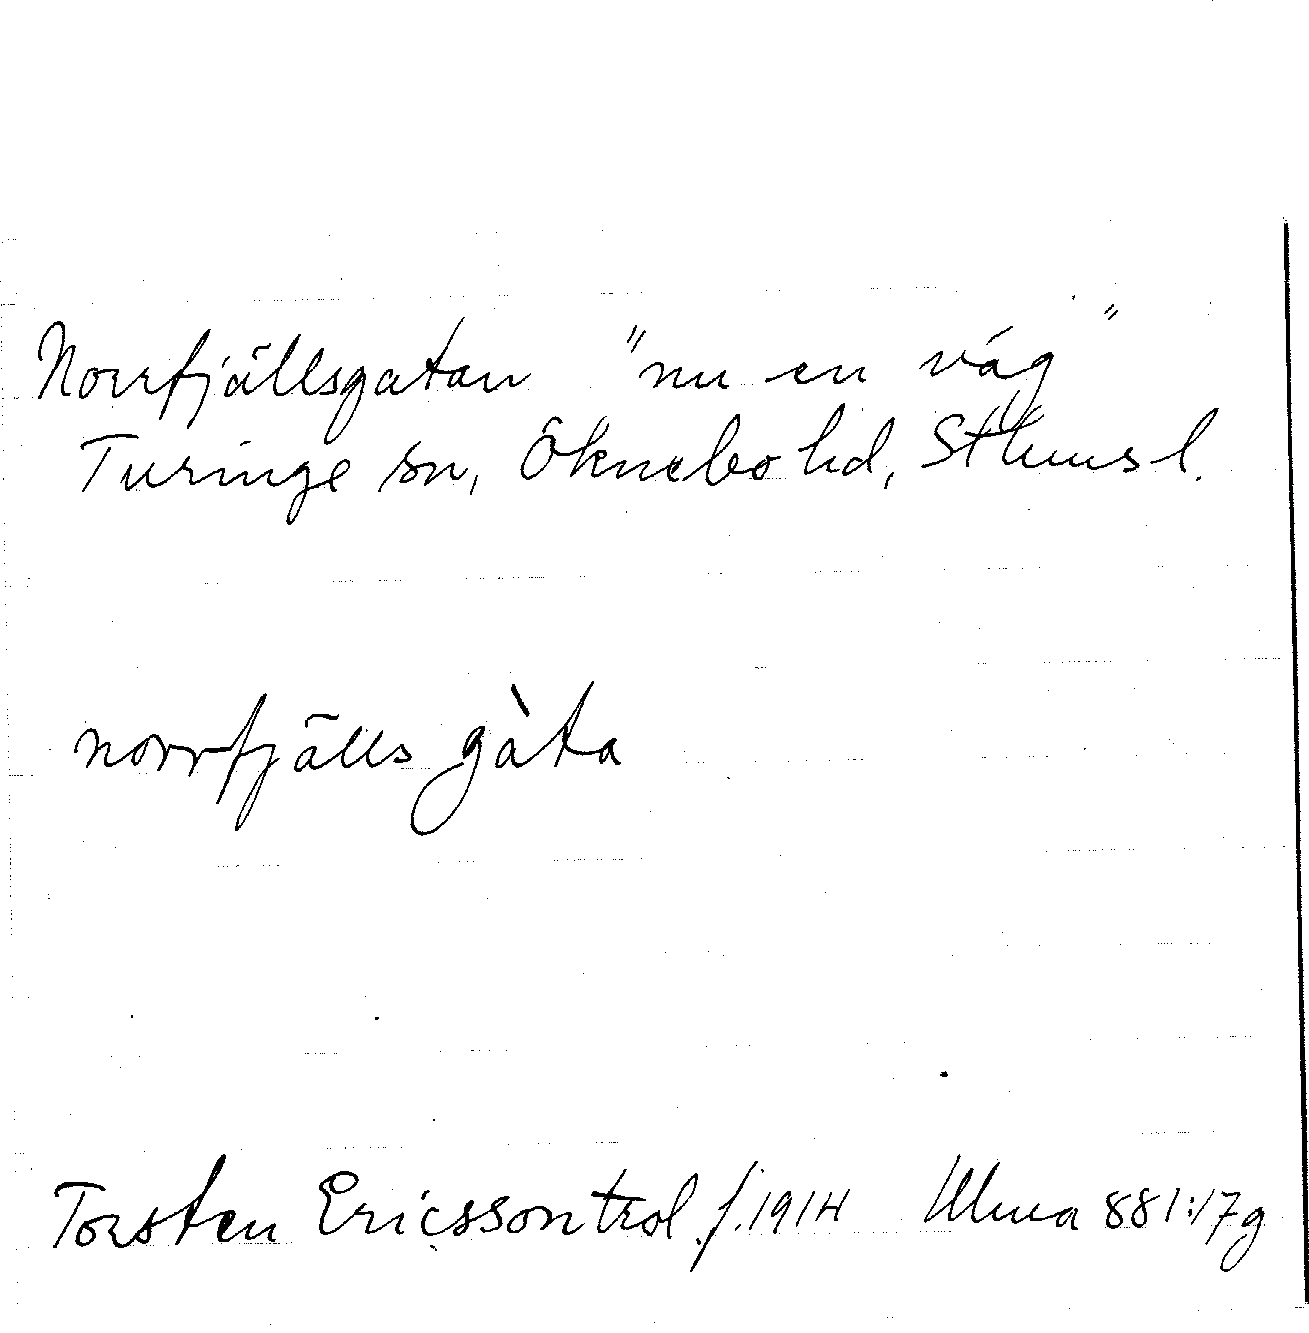 Norrfjällsgatan "nu en väg"
Turinge sn, Öknebo hd, Sthlms l.
norrfjälls gàta
Torsten Ericsson trol. f. 1914 Ulma 881:17g